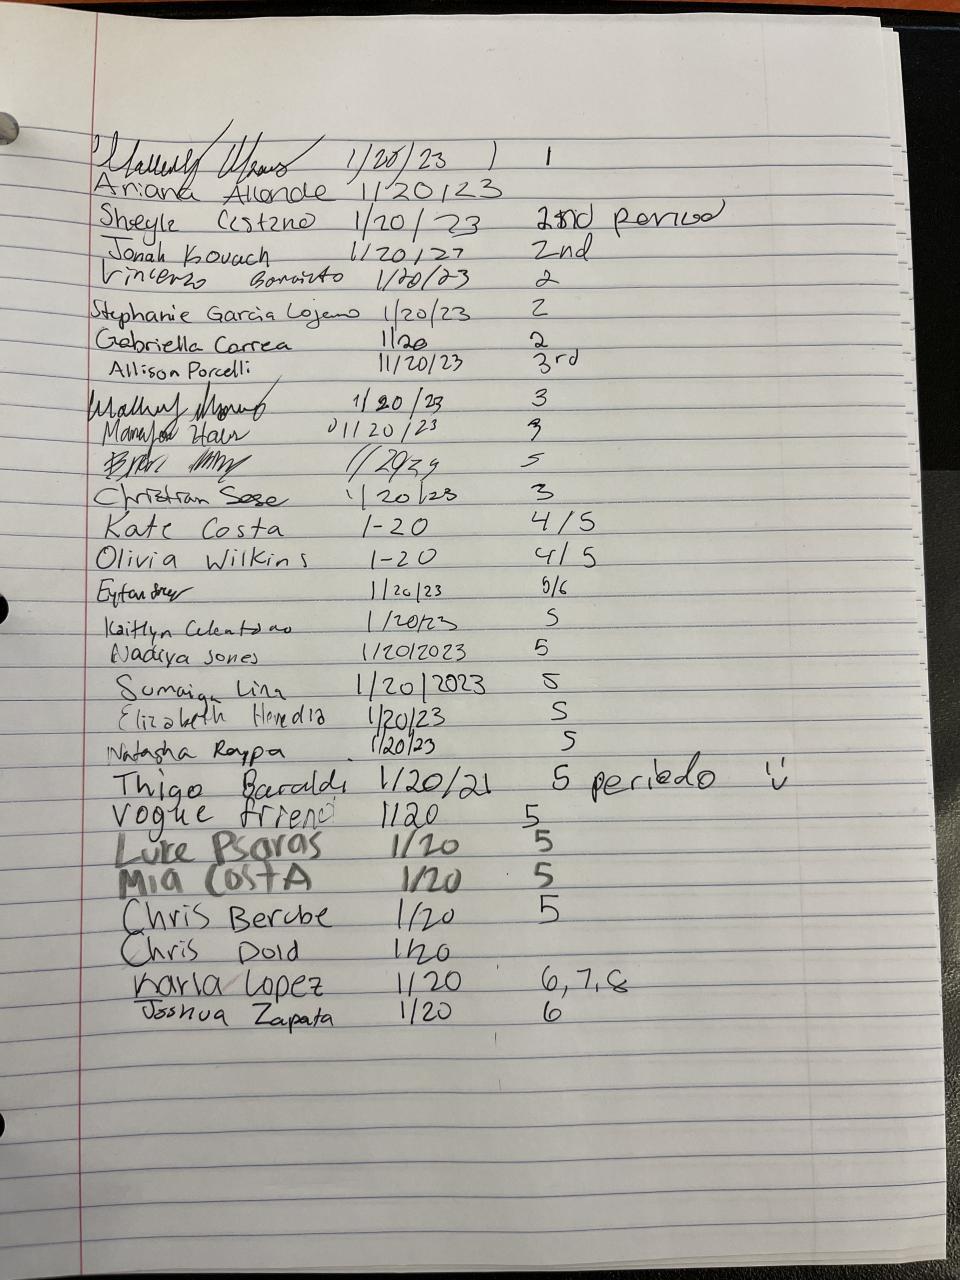 1/20/23 1
Ariana Allende 1/20/23
Sheyle 1/20/23 2nd period
Jonah Kovach 1/20/23 2nd
Vincenzo 1/20/23 2
Stephanie Garcia Lojano 1/20/23 2
Gabriella Correa 1/20 2
Allison Porcelli 11/20/23 3rd
1/20/23 3
1/20/23 3
5
Christian Sese 1/20/23 3
Kate Costa 1-20 4/5
Olivia Wilkins 1-20 4/5
1/20/23 5/6
Kaitlyn 1/20/23 5
Nadiya Jones 1/20/2023 5
Sumaiya Lira 1/20/2023 5
Elizabeth Heredia 1/20/23 5
Natasha Raypa 1/20/23 5
Thigo Baraldi 1/20/21 5 periedo
Vogue 1/20 5
Luke Psaras 1/20 5
Mia CostA 1/20 5
Chris Berube 1/20 5
Chris Dold 1/20
Karla Lopez 1/20 6,7,8
Joshua Zapata 1/20 6